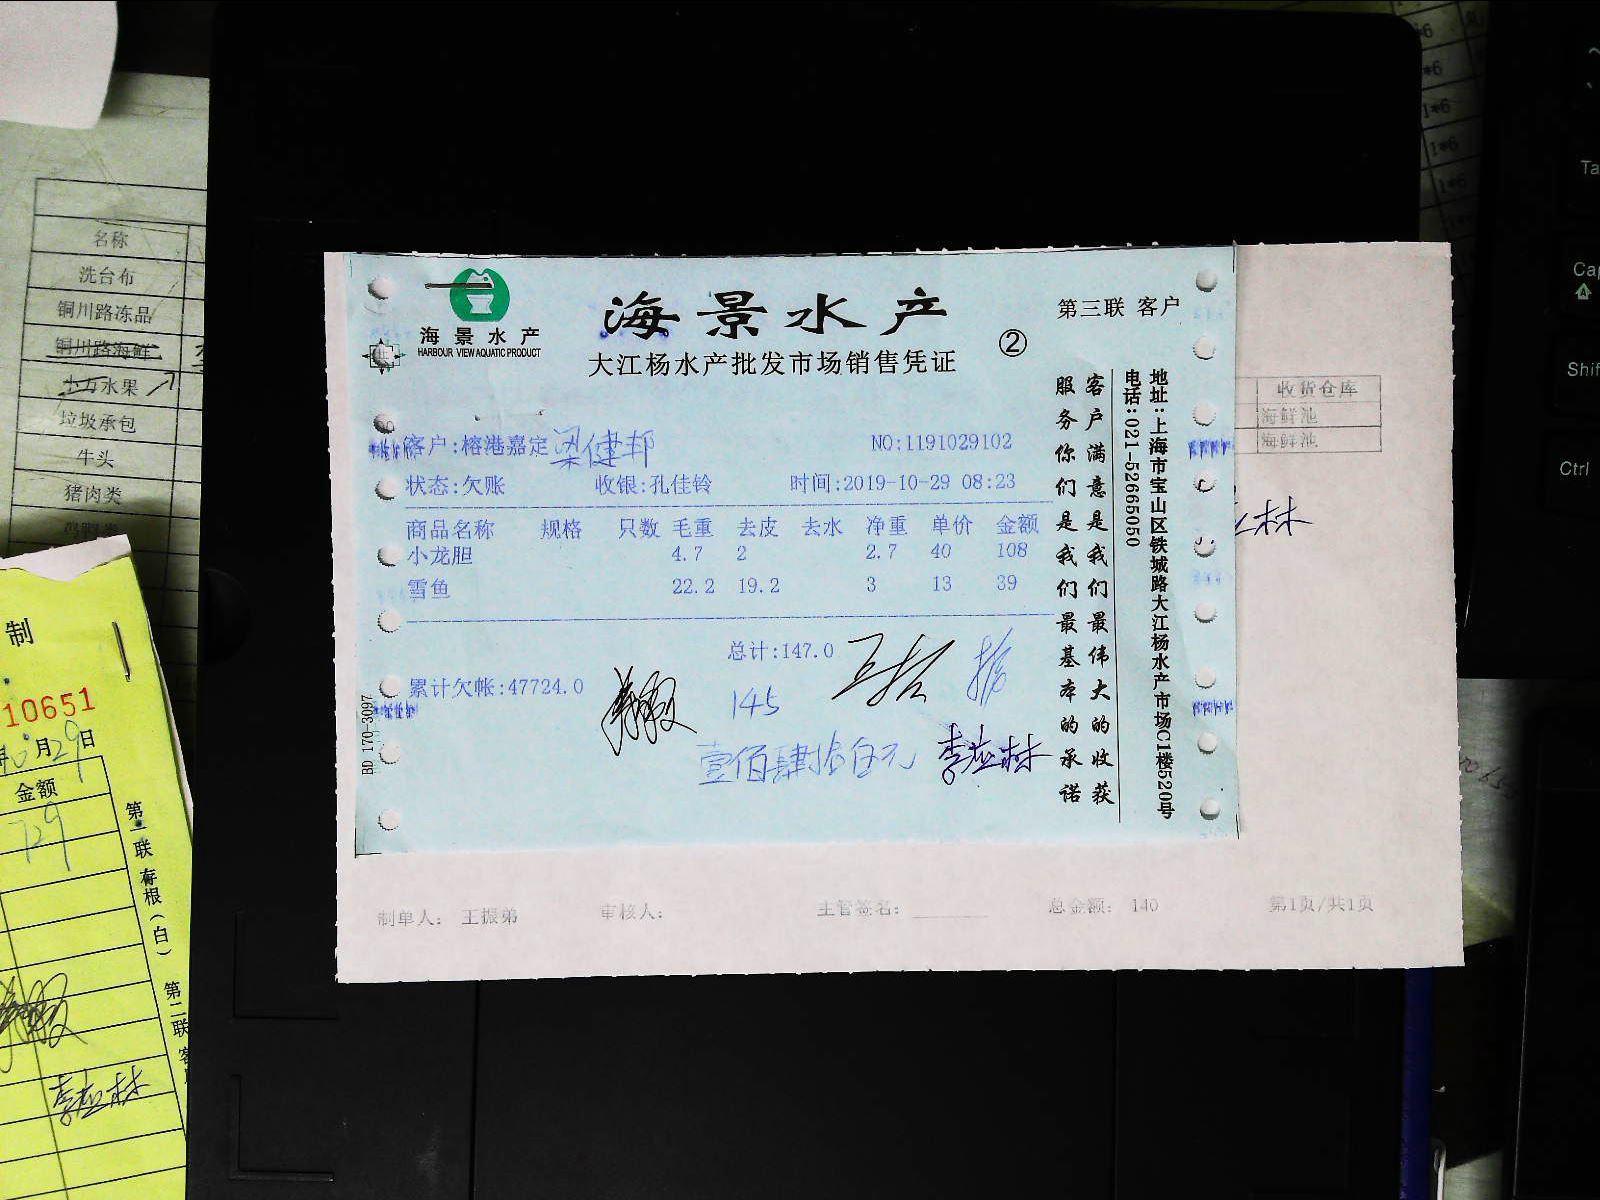 海景水产
HARBOUR VIEW AQUATIC PRODUCT
海景水产
大江杨水产批发市场销售凭证
②
第三联 客户
客户:榕港嘉定 梁健邦
NO:1191029102
状态:欠账 收银:孔佳铃 时间:2019-10-29 08:23
商品名称 规格 只数 毛重 去皮 去水 净重 单价 金额
小龙胆 4.7 2 2.7 40 108
雪鱼 22.2 19.2 3 13 39
总计:147.0
累计欠帐:47724.0
145
李应林
客户满意是我们最伟大的收获
服务你们是我们最基本的承诺
地址:上海市宝山区铁城路大江杨水产市场C1楼520号
电话:021-52665050
BD 170-3097
收货仓库
海鲜池
海鲜池
制单人: 王振弟 审核人: 主管签名: 总金额: 140 第1页/共1页
名称
洗台布
铜川路冻品
铜川路海鲜
水果
垃圾承包
牛头
猪肉类
制
10651
月29日
金额
729
第一联 存根(白) 第二联
李应林
1*6
1*6
1*6
Ctrl